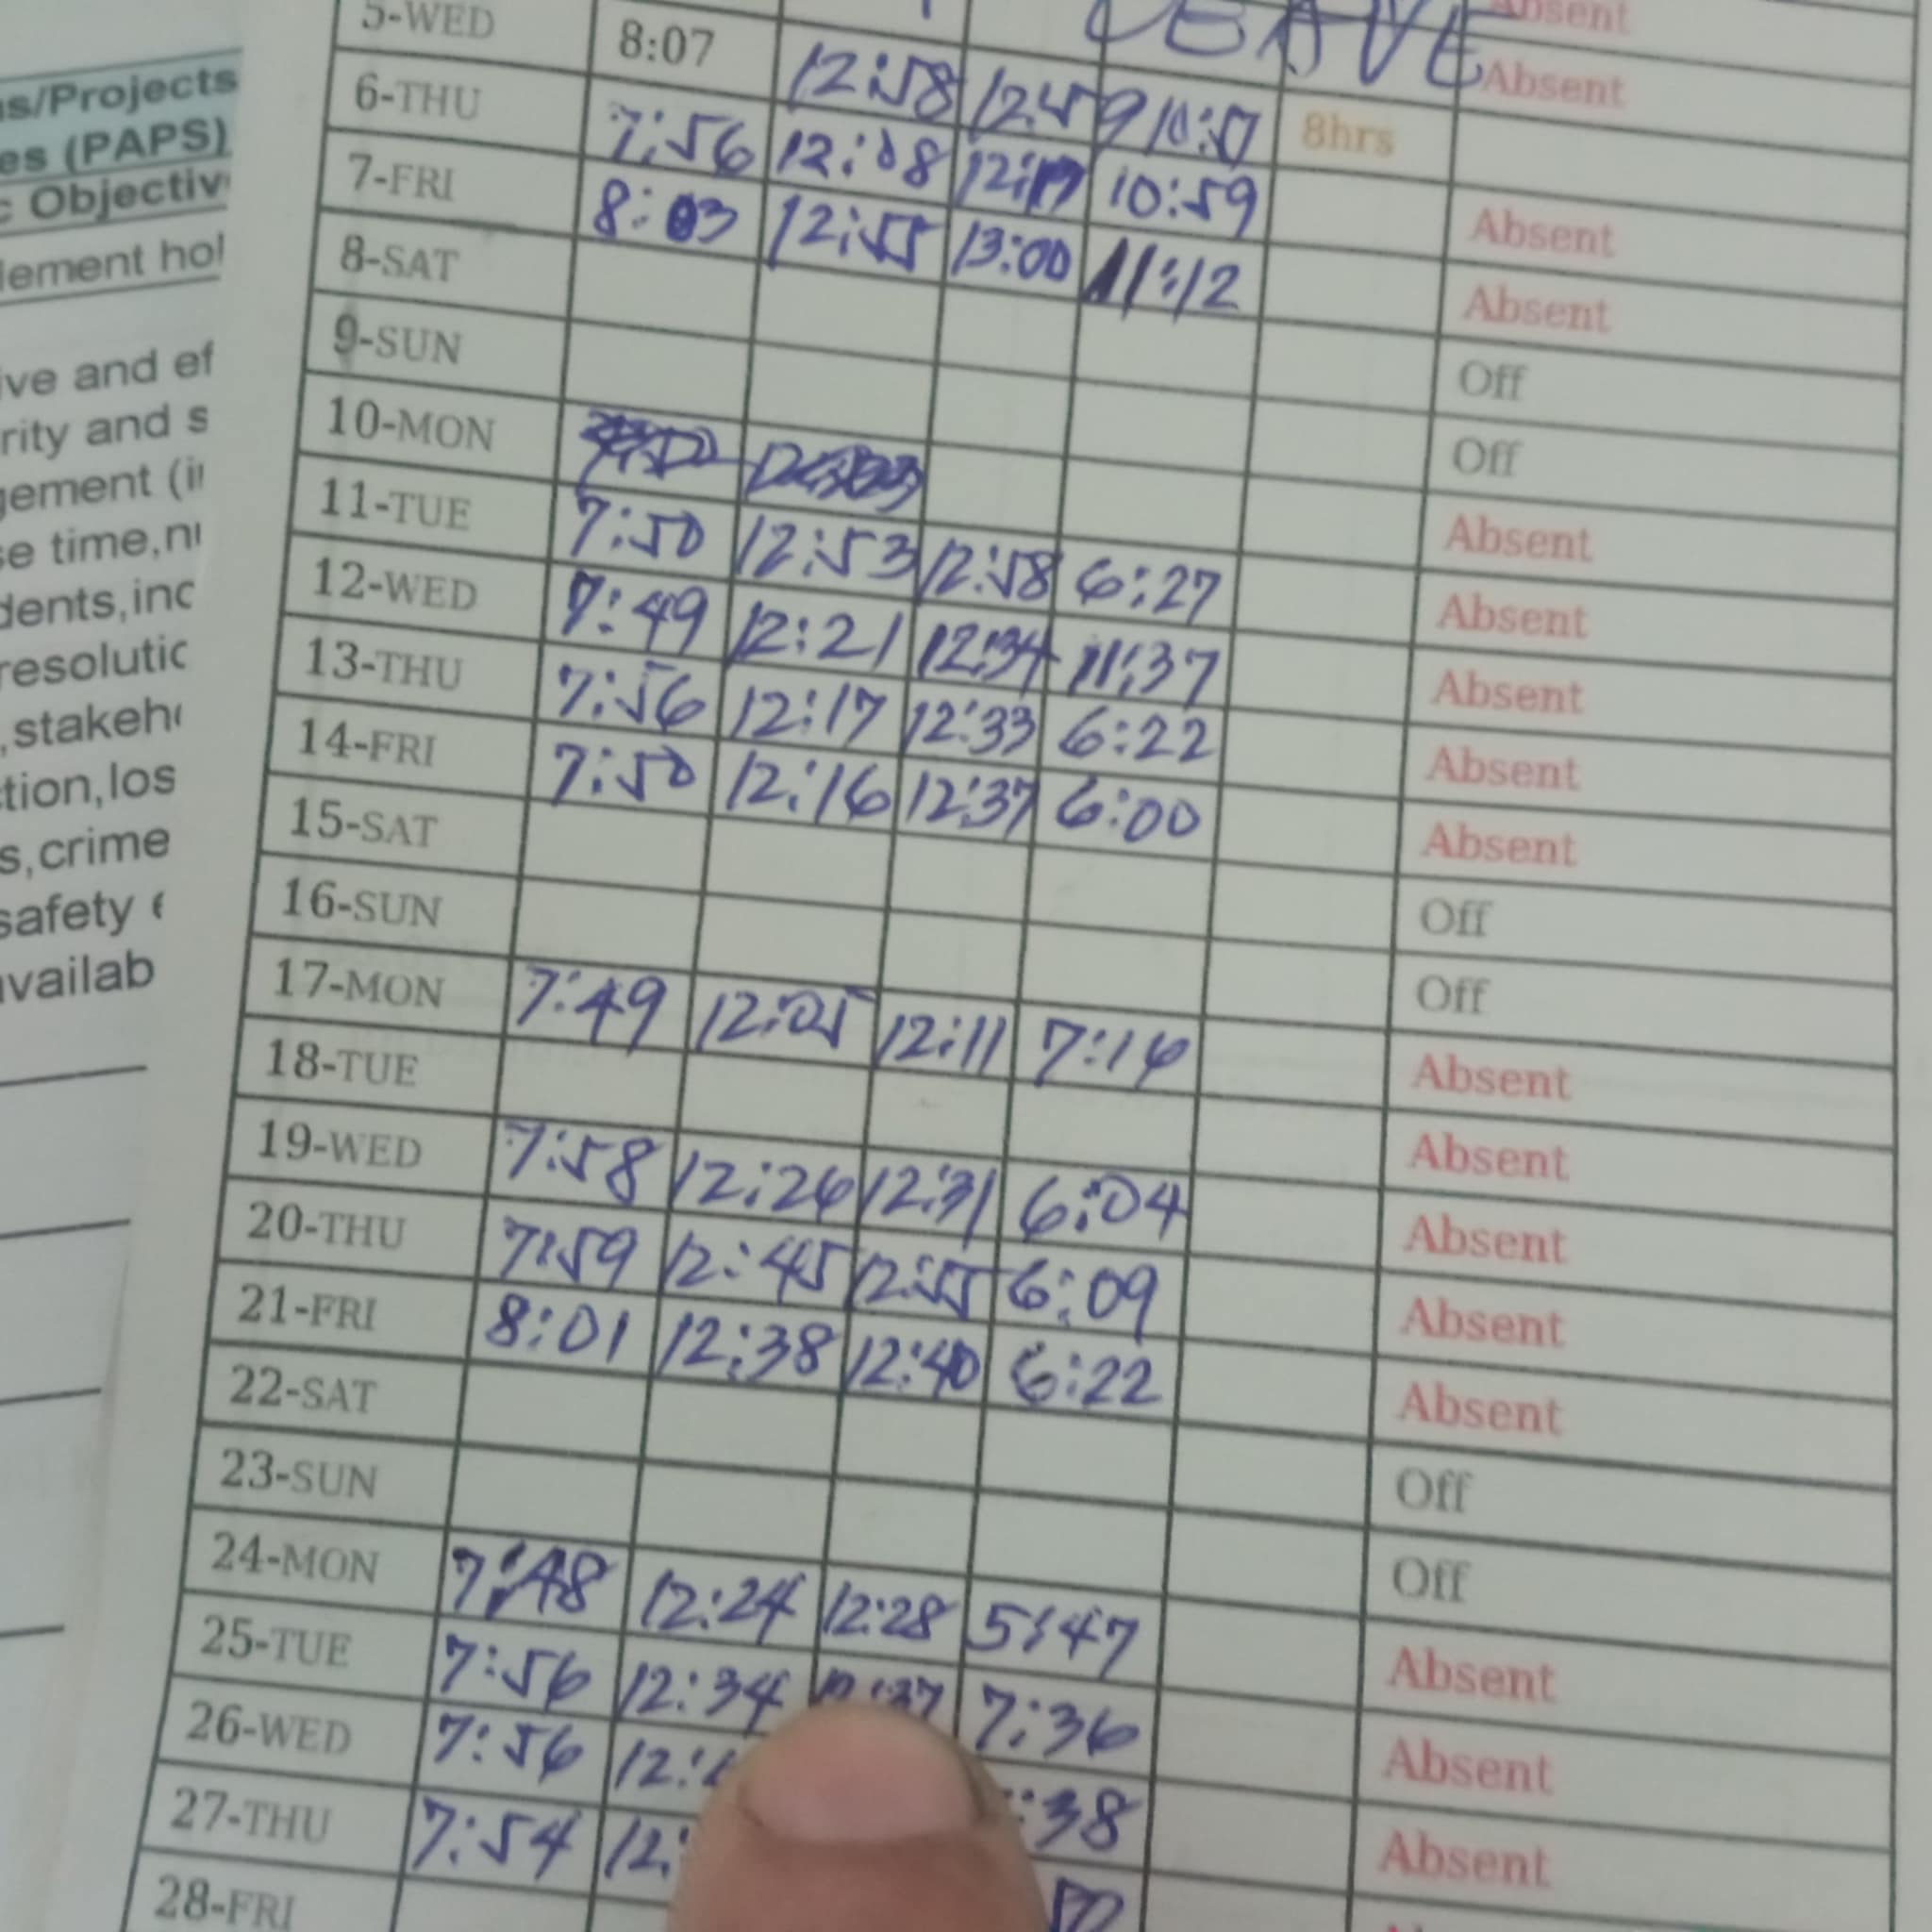 Absent
LEAVE Absent
5-WED 8:07 12:58 12:59 10:57 8hrs
6-THU 7:56 12:08 12:17 10:59 Absent
7-FRI 8:03 12:55 13:00 11:12 Absent
8-SAT Off
9-SUN Off
10-MON Absent
11-TUE 7:50 12:53 12:58 6:27 Absent
12-WED 7:49 12:21 12:34 11:37 Absent
13-THU 7:56 12:17 12:33 6:22 Absent
14-FRI 7:50 12:16 12:37 6:00 Absent
15-SAT Off
16-SUN Off
17-MON 7:49 12:05 12:11 7:14 Absent
18-TUE Absent
19-WED 7:58 12:26 12:31 6:04 Absent
20-THU 7:59 12:45 12:55 6:09 Absent
21-FRI 8:01 12:38 12:40 6:22 Absent
22-SAT Off
23-SUN Off
24-MON 7:48 12:24 12:28 5:47 Absent
25-TUE 7:56 12:34 12:37 7:36 Absent
26-WED 7:56 12: :38 Absent
27-THU 7:54 12:
28-FRI
ns/Projects
es (PAPS)
c Objectiv
lement hol
ive and ef
rity and s
gement (i
se time,n
dents,inc
resolutic
,stakeh
ction,los
s,crime
safety
availab